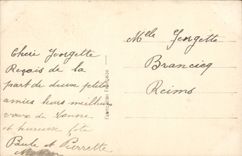 Chère Jorgette
Reçois de la
part de deux petites
amies leurs meilleurs
vœux de bonne
et heureuse fête
Paule et Pierrette
Mlle Jorgette
Brancicq
Reims